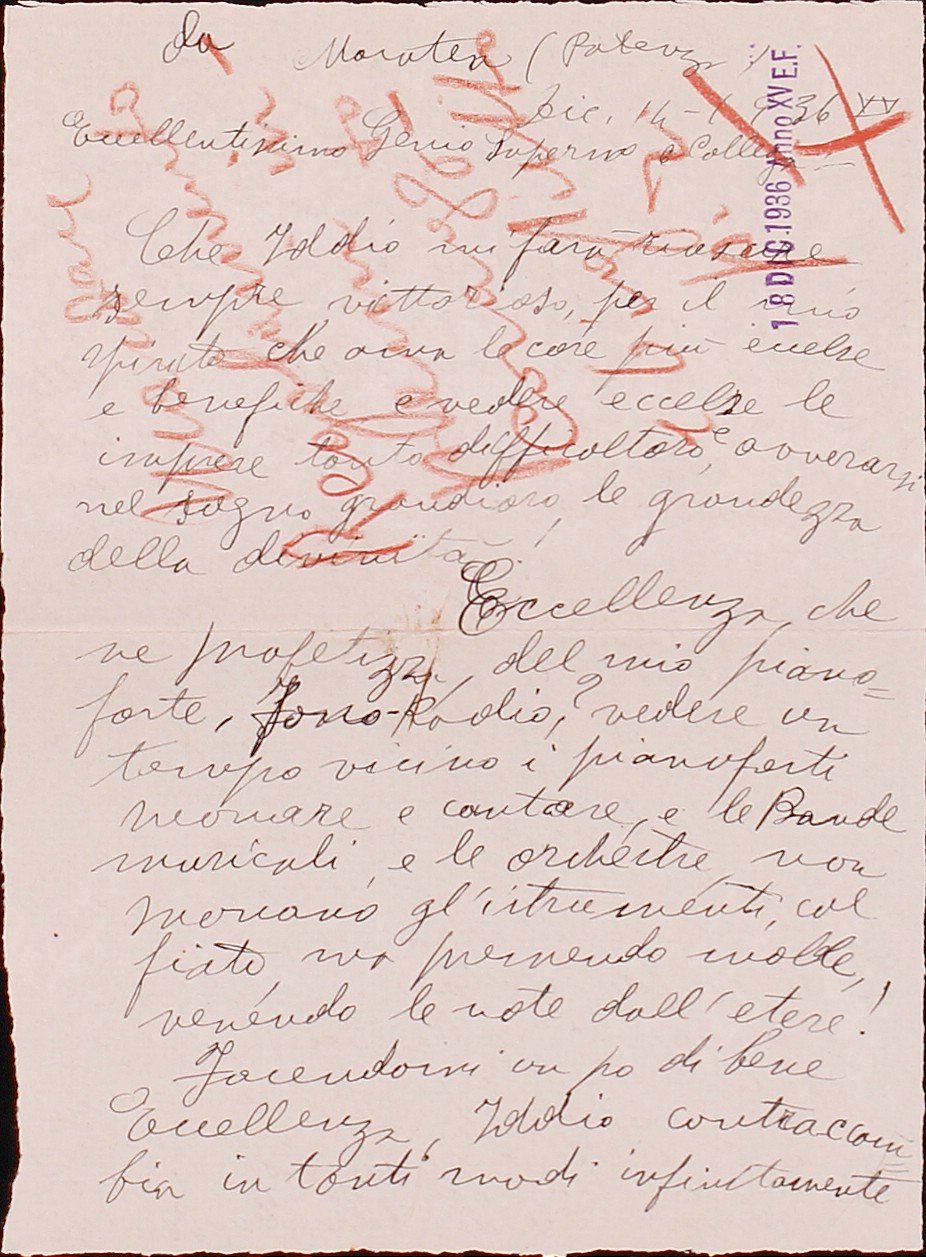 da Maratea (Potenza)
Dic. 14-1936 XV
18 DIC. 1936 Anno XV E.F.
Eccellentissimo Genio Superno e Collega
Che Iddio mi farà riuscire
sempre vittorioso, per il mio
spirito che ama le cose più eccelse
e benefiche e vedere eccelse le
imprese tanto difficoltose, avverarsi
nel sogno grandioso, le grandezza
della divinità!
Eccellenza, che
ne profetizza, del mio piano=
forte, Fono-Radio,? vedere un
tempo vicino i pianoforti
suonare e cantare, e le Bande
musicali, e le orchestre, non
suonano gl'istrumenti, col
fiato, ma premendo molle,
venendo le note dall'etere!
Facendomi un po di bene
Eccellenza, Iddio contraccam=
bia in tanti modi infinitamente